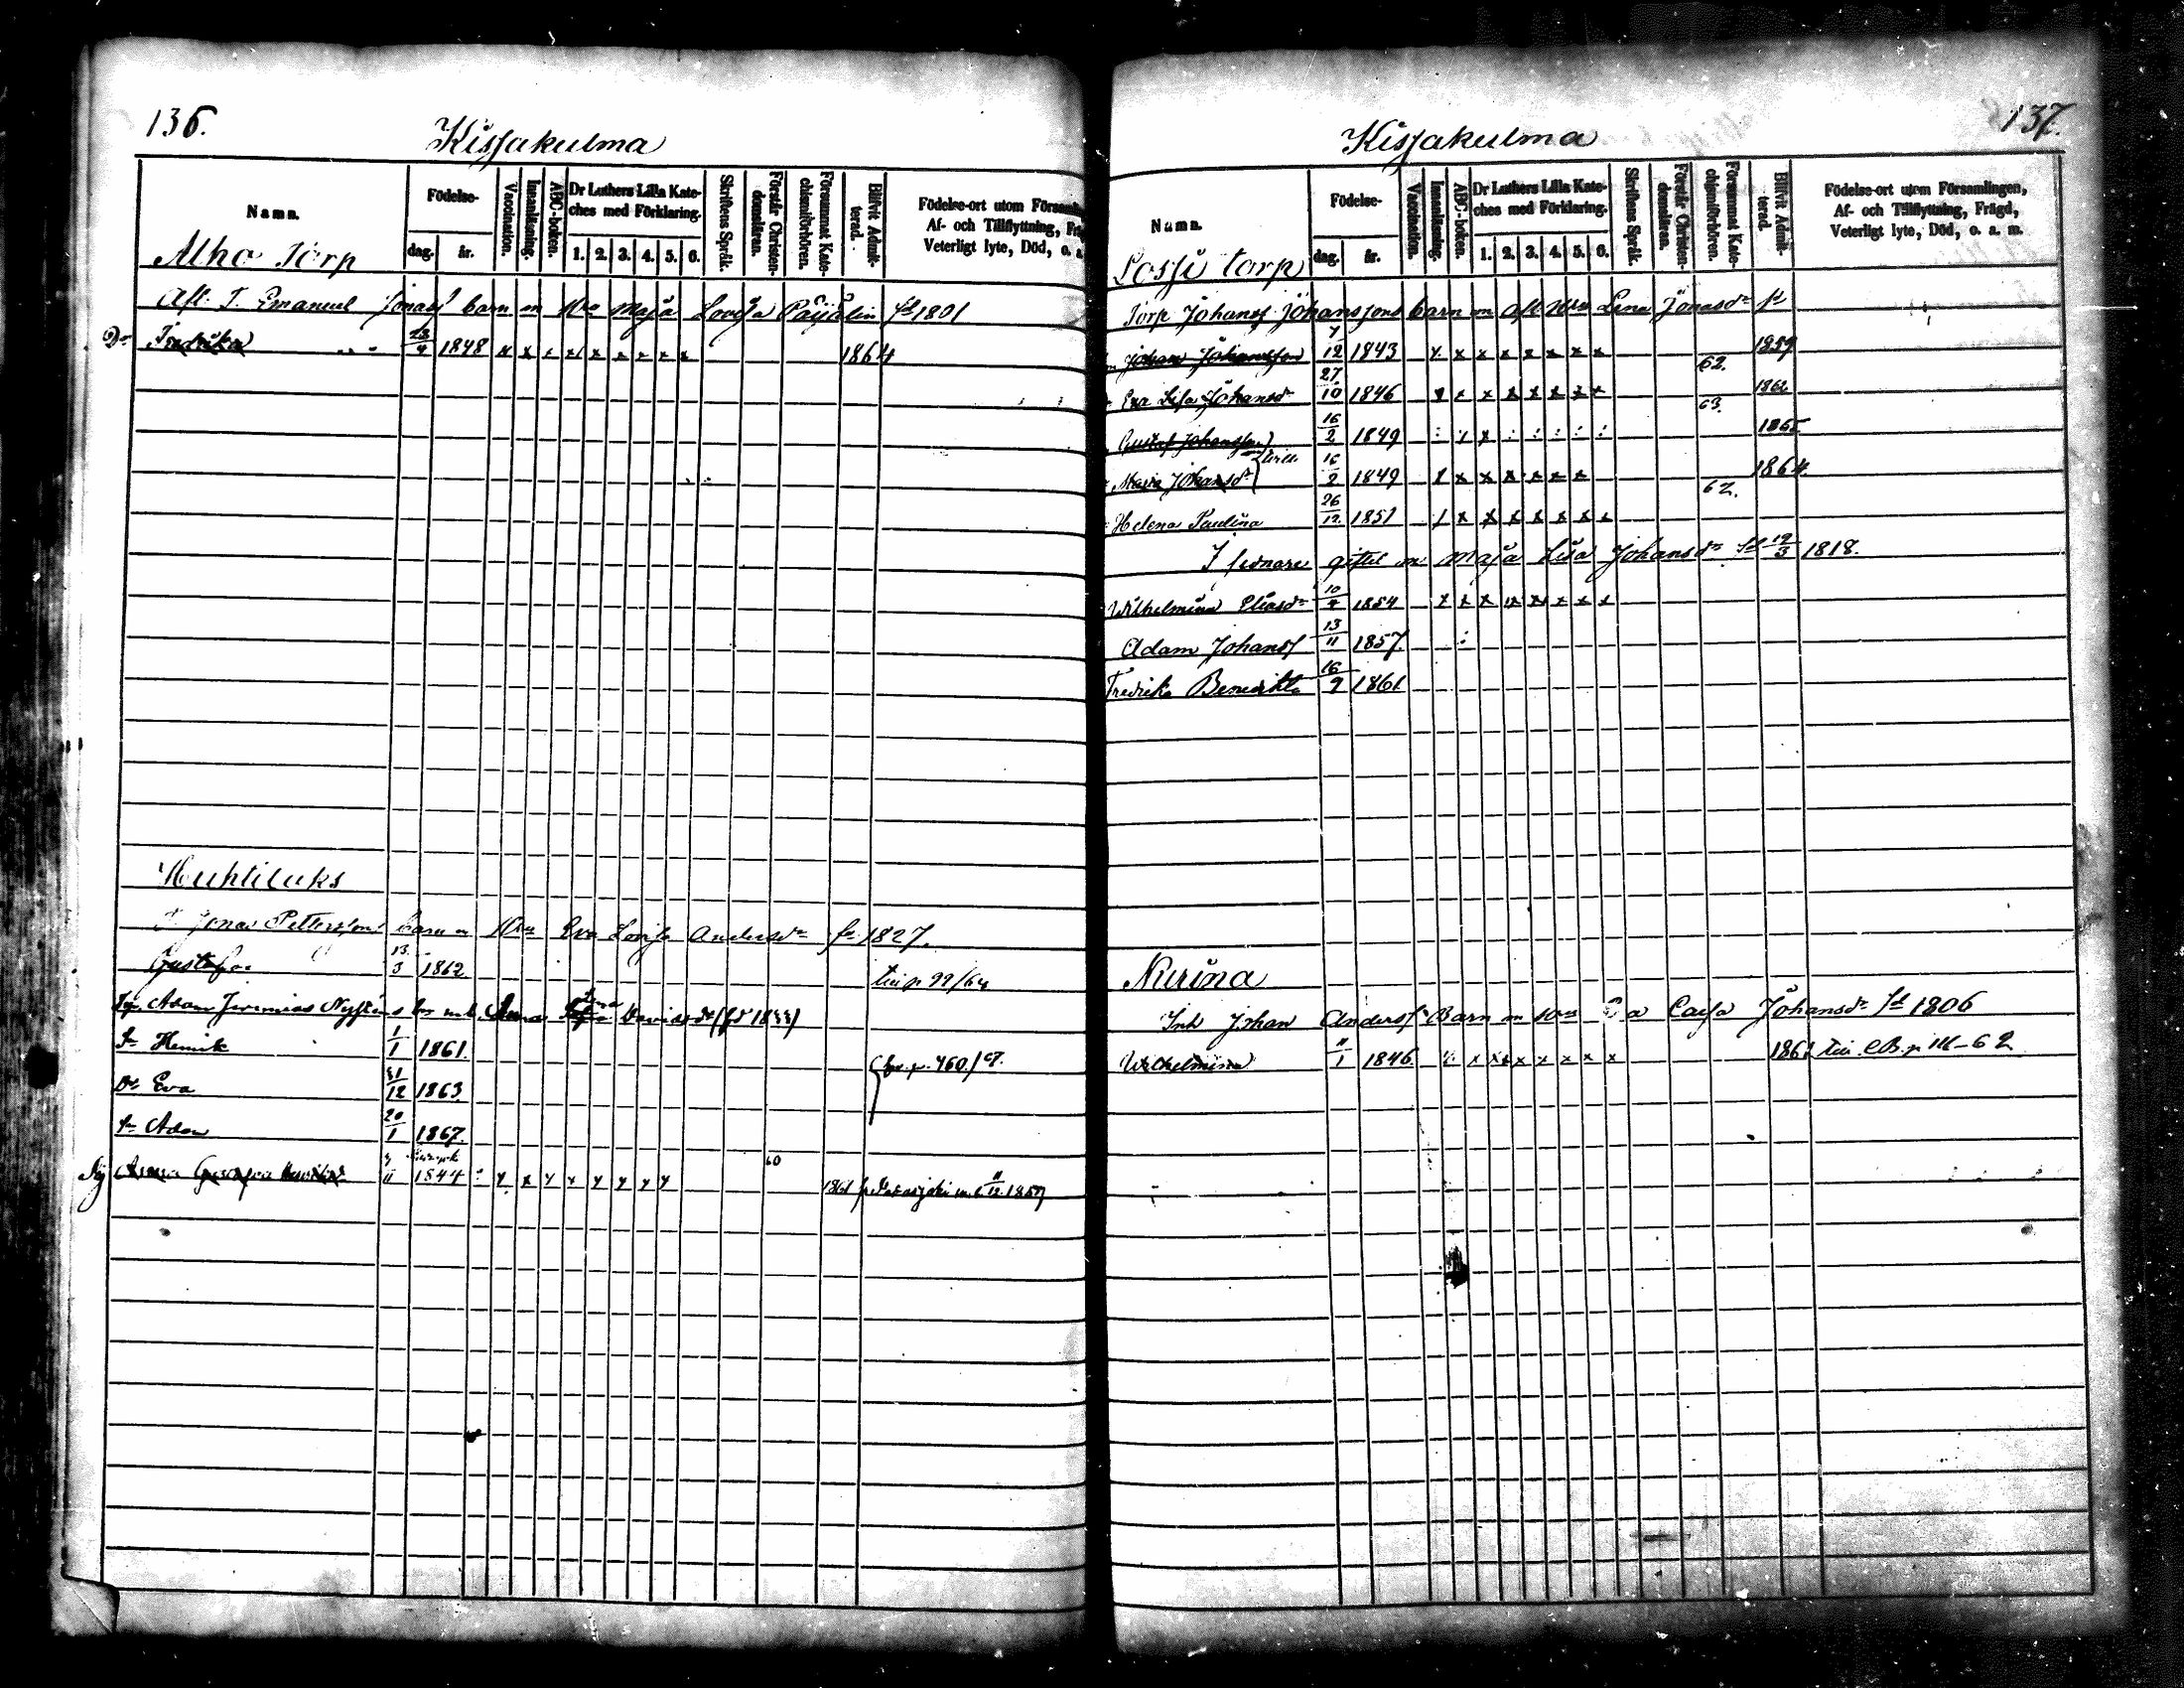 136.
Kissakulma
Namn.
Födelse-
dag. år.
Vaccination.
Innanläsning.
ABC-boken.
Dr Luthers Lilla Kate-
ches med Förklaring.
1. 2. 3. 4. 5. 6.
Skriftens Språk.
Förstår Christen-
domsläran.
Försummat Kate-
chismiförhören.
Blifvit Admit-
terad.
Födelse-ort utom Församl
Af- och Tillflyttning, Fr
Veterligt lyte, Död, o. a.
Alho Torp
Afl. T. Emanuel Jonass barn m Hru Maja Lovisa Päijälin fd 1801
Dr Fredrika 23/4 1848 x x x x x x x x 1864
Huhtiluks
Jonas Petterssons barn m Hru Eva Lovisa Andersdr fd 1827.
Gustafva 13/3 1862 till p 99/64
Adam Jeremias barn m h Anna Davidsdr (fd 1833)
Sn Henrik 1/1 1861 p. 460/67.
Dr Eva 31/12 1863
Sn Adam 20/1 1867.
Anna Gustafva 11 1844 x x x x x x x 60 1861 1859
137.
Kissakulma
Namn.
Födelse-
dag. år.
Vaccination.
Innanläsning.
ABC-boken.
Dr Luthers Lilla Kate-
ches med Förklaring.
1. 2. 3. 4. 5. 6.
Skriftens Språk.
Förstår Christen-
domsläran.
Försummat Kate-
chismiförhören.
Blifvit Admit-
terad.
Födelse-ort utom Församlingen,
Af- och Tillflyttning, Frägd,
Veterligt lyte, Död, o. a. m.
Sossi torp
Torp Johans Johanssons barn m afl Hru Lena Jonasdr fd
Johan Johansson 7/12 1843 x x x x x x x x 62. 1859
Eva Lisa Johansdr 27/10 1846 x x x x x x x x 63. 1862
Gustaf Johansson 16/2 1849 1865
Maria Johansdr 16/2 1849 x x x x x x x 62. 1864.
Helena Paulina 26/12 1851 x x x x x x x x
I sednare giftet m Maja Lisa Johansdr fd 19/3 1818.
Wilhelmina Eliasdr 10/4 1854 x x x x x x x x
Adam Johans 13/11 1857.
Fredrika Benedikta 16/9 1861
Nurina
Inh Johan Anderss Barn m Hru Eva Caisa Johansdr fd 1806
Wilhelmina 11/1 1846. x x x x x x x x 1861 till C.B. p 111-62